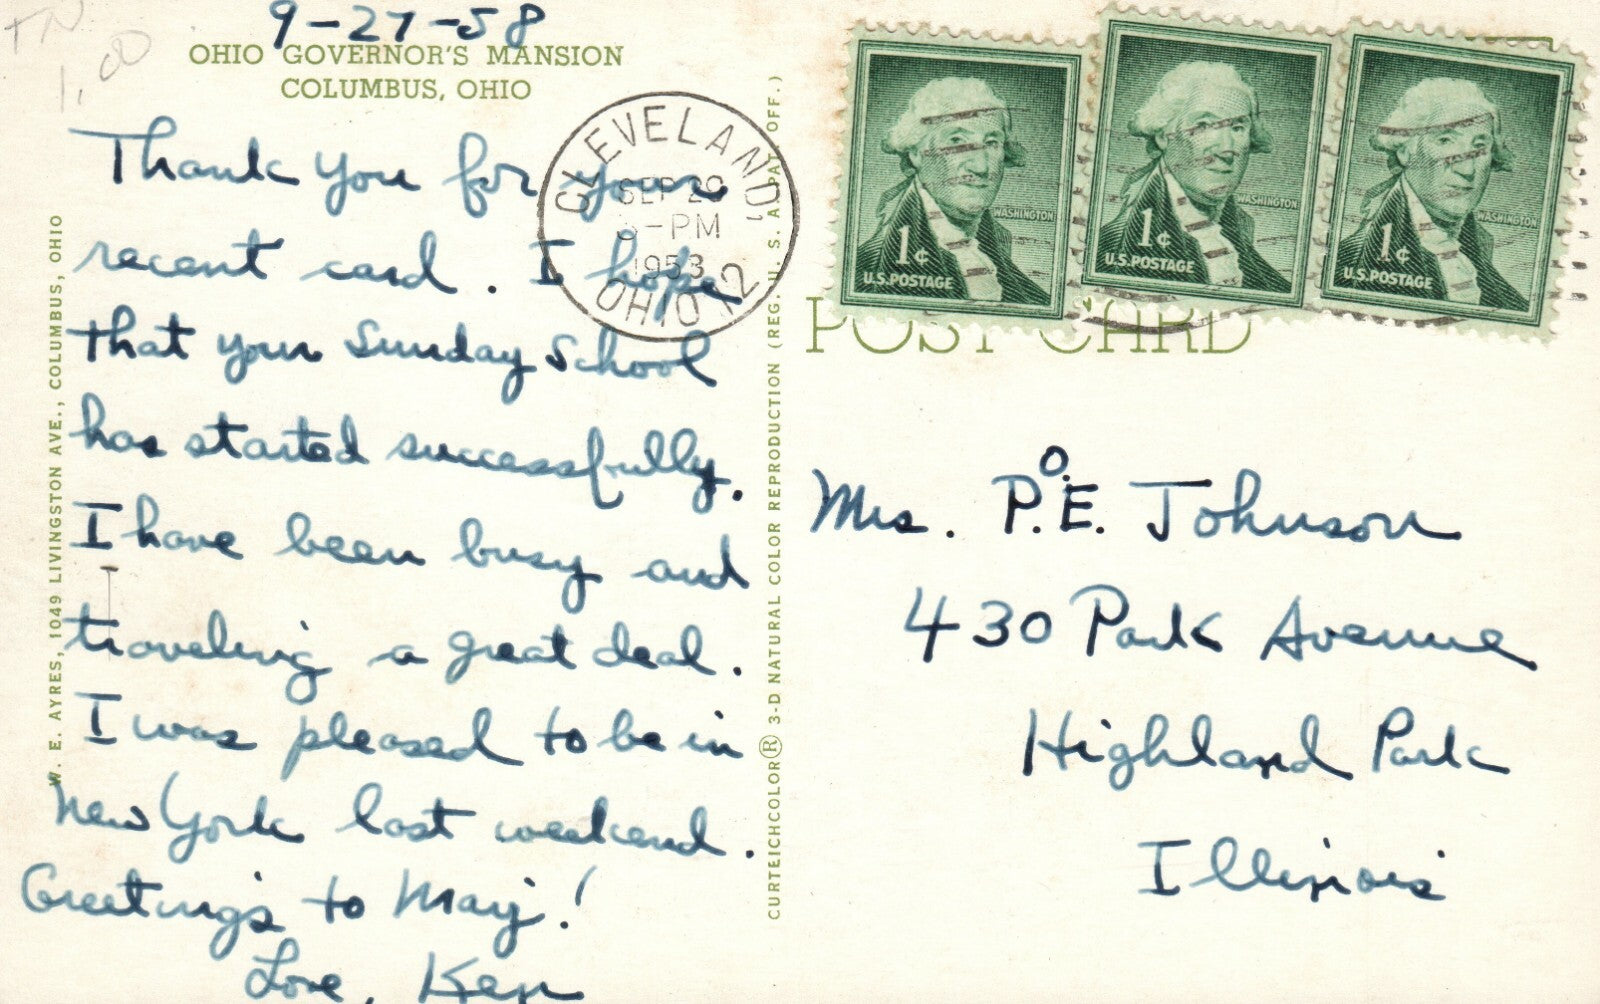 TN
1.00
9-27-58
OHIO GOVERNOR'S MANSION
COLUMBUS, OHIO
Thank you for your
recent card. I hope
that your Sunday School
has started successfully.
I have been busy and
traveling a great deal.
I was pleased to be in
New York last weekend.
Greetings to Marj!
Love, Ken
W. E. AYRES, 1049 LIVINGSTON AVE., COLUMBUS, OHIO
CURTEICHCOLOR® 3-D NATURAL COLOR REPRODUCTION (REG. U. S. A. PAT. OFF.)
CLEVELAND,
SEP 29
PM
OHIO 12
WASHINGTON
1¢
U.S. POSTAGE
WASHINGTON
1¢
U.S. POSTAGE
WASHINGTON
1¢
U.S. POSTAGE
POST CARD
Mrs. P.O.E. Johnson
430 Park Avenue
Highland Park
Illinois